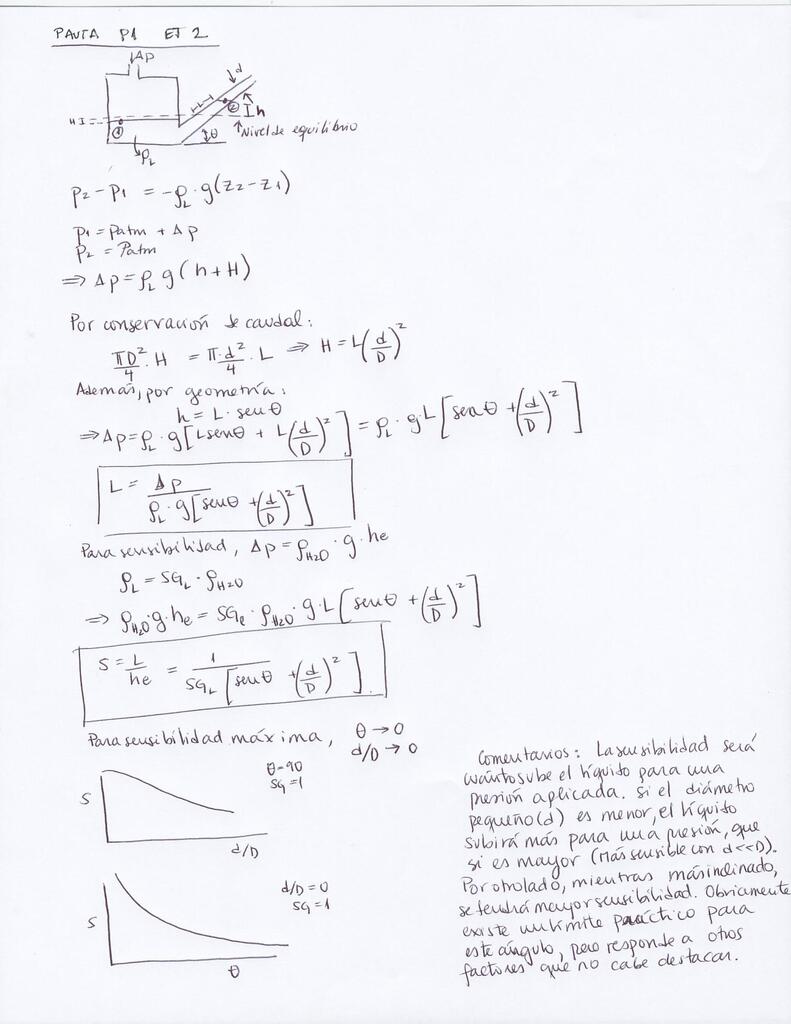 PAUTA P1 ET 2
Δp
d
H
①
②
h
θ
Nivel de equilibrio
ρL
p2 - p1 = -ρL · g(z2 - z1)
p1 = Patm + Δp
p2 = Patm
⇒ Δp = ρL g(h + H)
Por conservación de caudal:
πD²/4 · H = π·d²/4 · L ⇒ H = L(d/D)²
Además, por geometría:
h = L · senθ
⇒ Δp = ρL · g[Lsenθ + L(d/D)²] = ρL · g·L[senθ + (d/D)²]
L = Δp / ρL · g[senθ + (d/D)²]
Para sensibilidad, Δp = ρH2O · g · he
ρL = SGL · ρH2O
⇒ ρH2O · g · he = SGe · ρH2O · g · L[senθ + (d/D)²]
S = L/he = 1 / SGL [senθ + (d/D)²]
Para sensibilidad máxima, θ → 0
d/D → 0
θ=90
SG=1
S
d/D
d/D = 0
SG = 1
S
θ
Comentarios: La sensibilidad será
cuanto sube el líquido para una
presión aplicada. Si el diámetro
pequeño (d) es menor, el líquido
subirá más para una presión, que
si es mayor (Más sensible con d<<D).
Por otro lado, mientras más inclinado,
se tendrá mayor sensibilidad. Obviamente
existe un límite práctico para
este ángulo, pero responde a otros
factores que no cabe destacar.